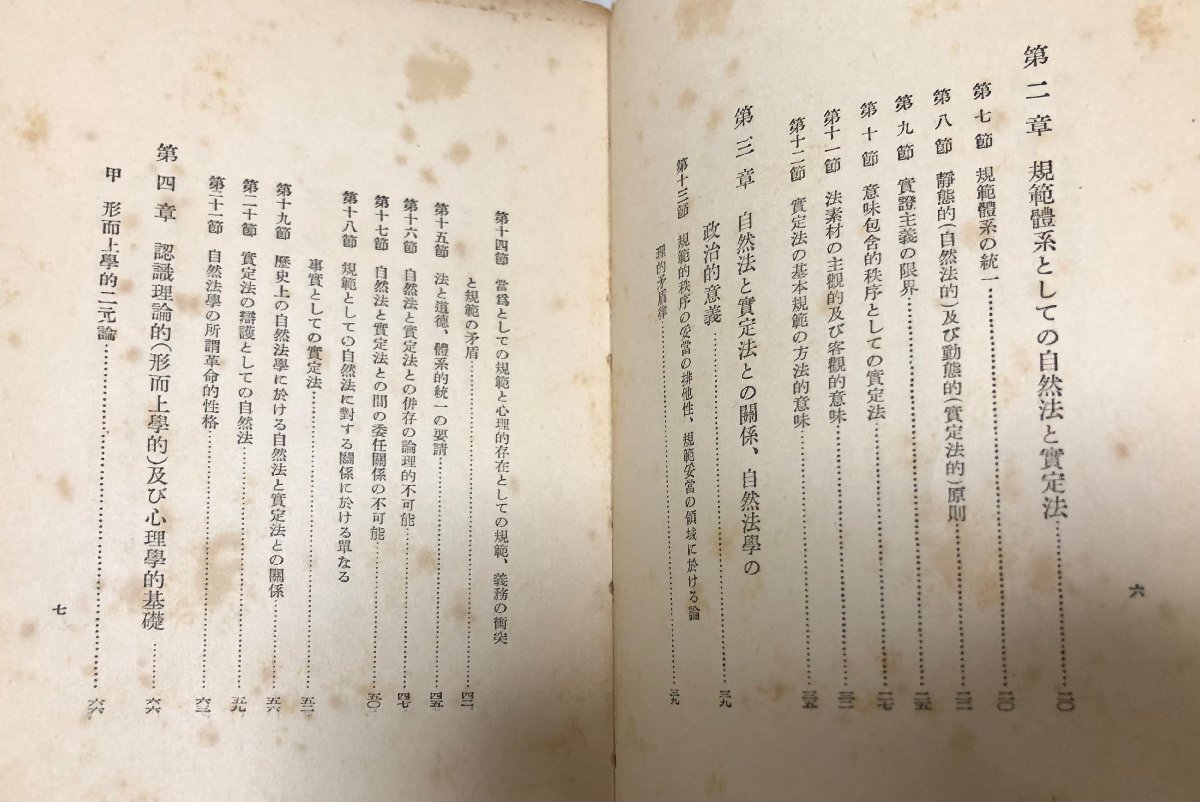 第二章 規範體系としての自然法と實定法……二〇
第七節 規範體系の統一……二〇
第八節 靜態的(自然法的)及び動態的(實定法的)原則……二二
第九節 實證主義の限界……二五
第十節 意味包含的秩序としての實定法……二七
第十一節 法素材の主觀的及び客觀的意味……三二
第十二節 實定法の基本規範の方法的意味……三五
第三章 自然法と實定法との關係、自然法學の
政治的意義……三九
第十三節 規範的秩序の妥當の排他性、規範妥當の領域に於ける論
理的矛盾律……三九
六
第十四節 當爲としての規範と心理的存在としての規範、義務の衝突
と規範の矛盾……四二
第十五節 法と道德、體系的統一の要請……四五
第十六節 自然法と實定法との併存の論理的不可能……四七
第十七節 自然法と實定法との間の委任關係の不可能……五〇
第十八節 規範としての自然法に對する關係に於ける單なる
事實としての實定法……五二
第十九節 歷史上の自然法學に於ける自然法と實定法との關係……五六
第二十節 實定法の辯護としての自然法……五九
第二十一節 自然法學の所謂革命的性格……六二
第四章 認識理論的(形而上學的)及び心理學的基礎……六六
甲 形而上學的二元論……六六
七